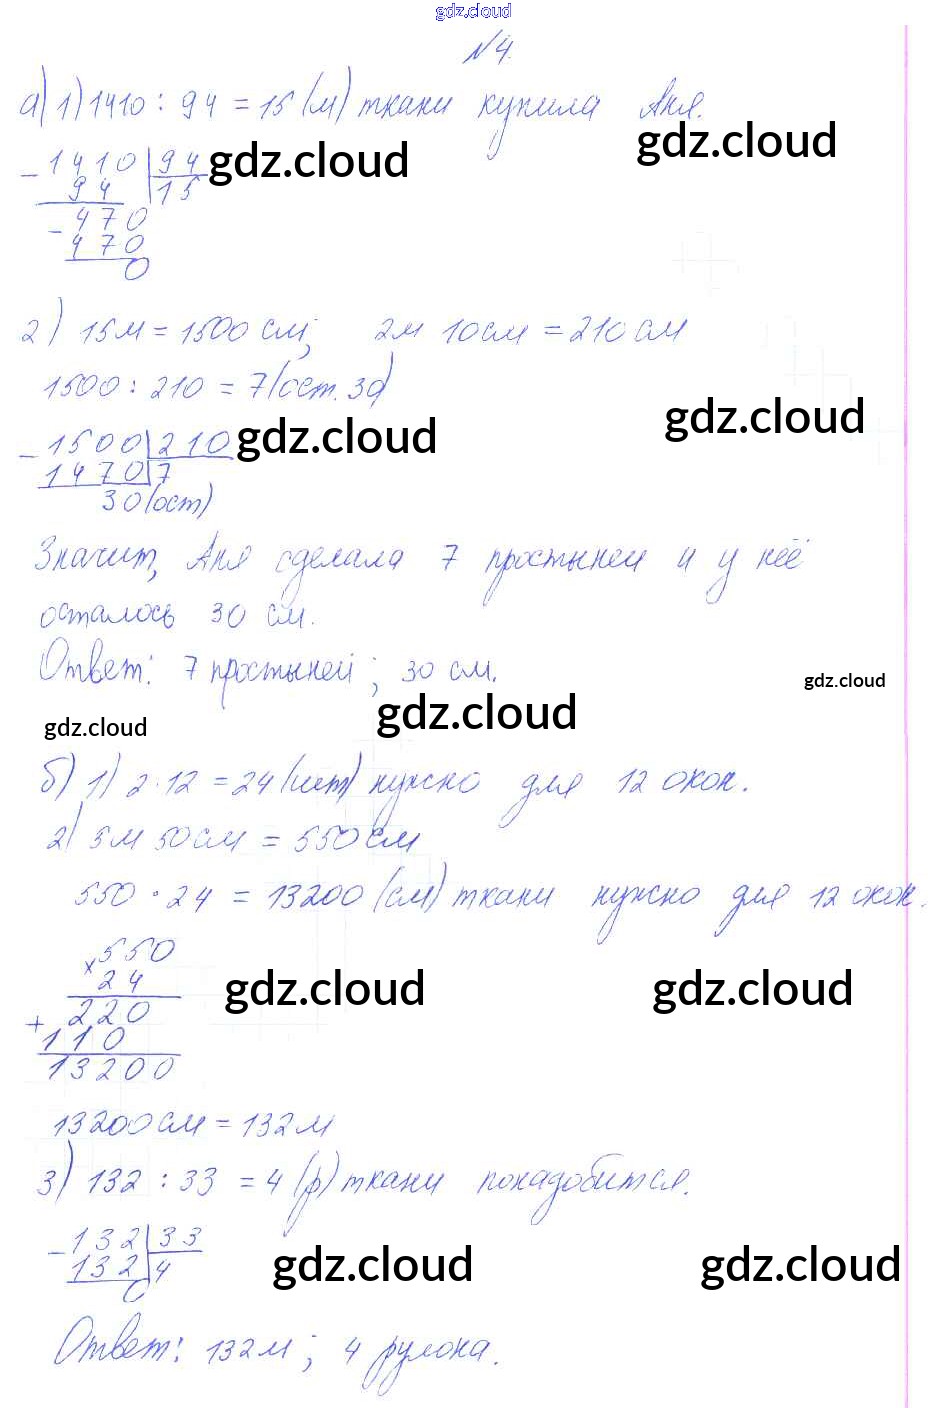 gdz.cloud
№4.
а) 1) 1410 : 94 = 15 (м) ткани купила Аня.
- 1410 | 94 gdz.cloud gdz.cloud
94 15
- 470
470
0
2) 15м = 1500 см; 2м 10см = 210 см
1500 : 210 = 7 (ост. 30)
gdz.cloud
- 1500 | 210 gdz.cloud
1470 7
30 (ост)
Значит, Аня сделала 7 простыней и у неё
осталось 30 см.
Ответ: 7 простыней; 30 см.
gdz.cloud
gdz.cloud gdz.cloud
б) 1) 2·12 = 24 (шт) нужно для 12 окон.
2) 5м 50см = 550 см
550 · 24 = 13200 (см) ткани нужно для 12 окон.
x 550
24 gdz.cloud gdz.cloud
+ 220
110
13200
13200 см = 132 м
3) 132 : 33 = 4 (р) ткани понадобится.
- 132 | 33
132 4 gdz.cloud gdz.cloud
0
Ответ: 132 м; 4 рулона.